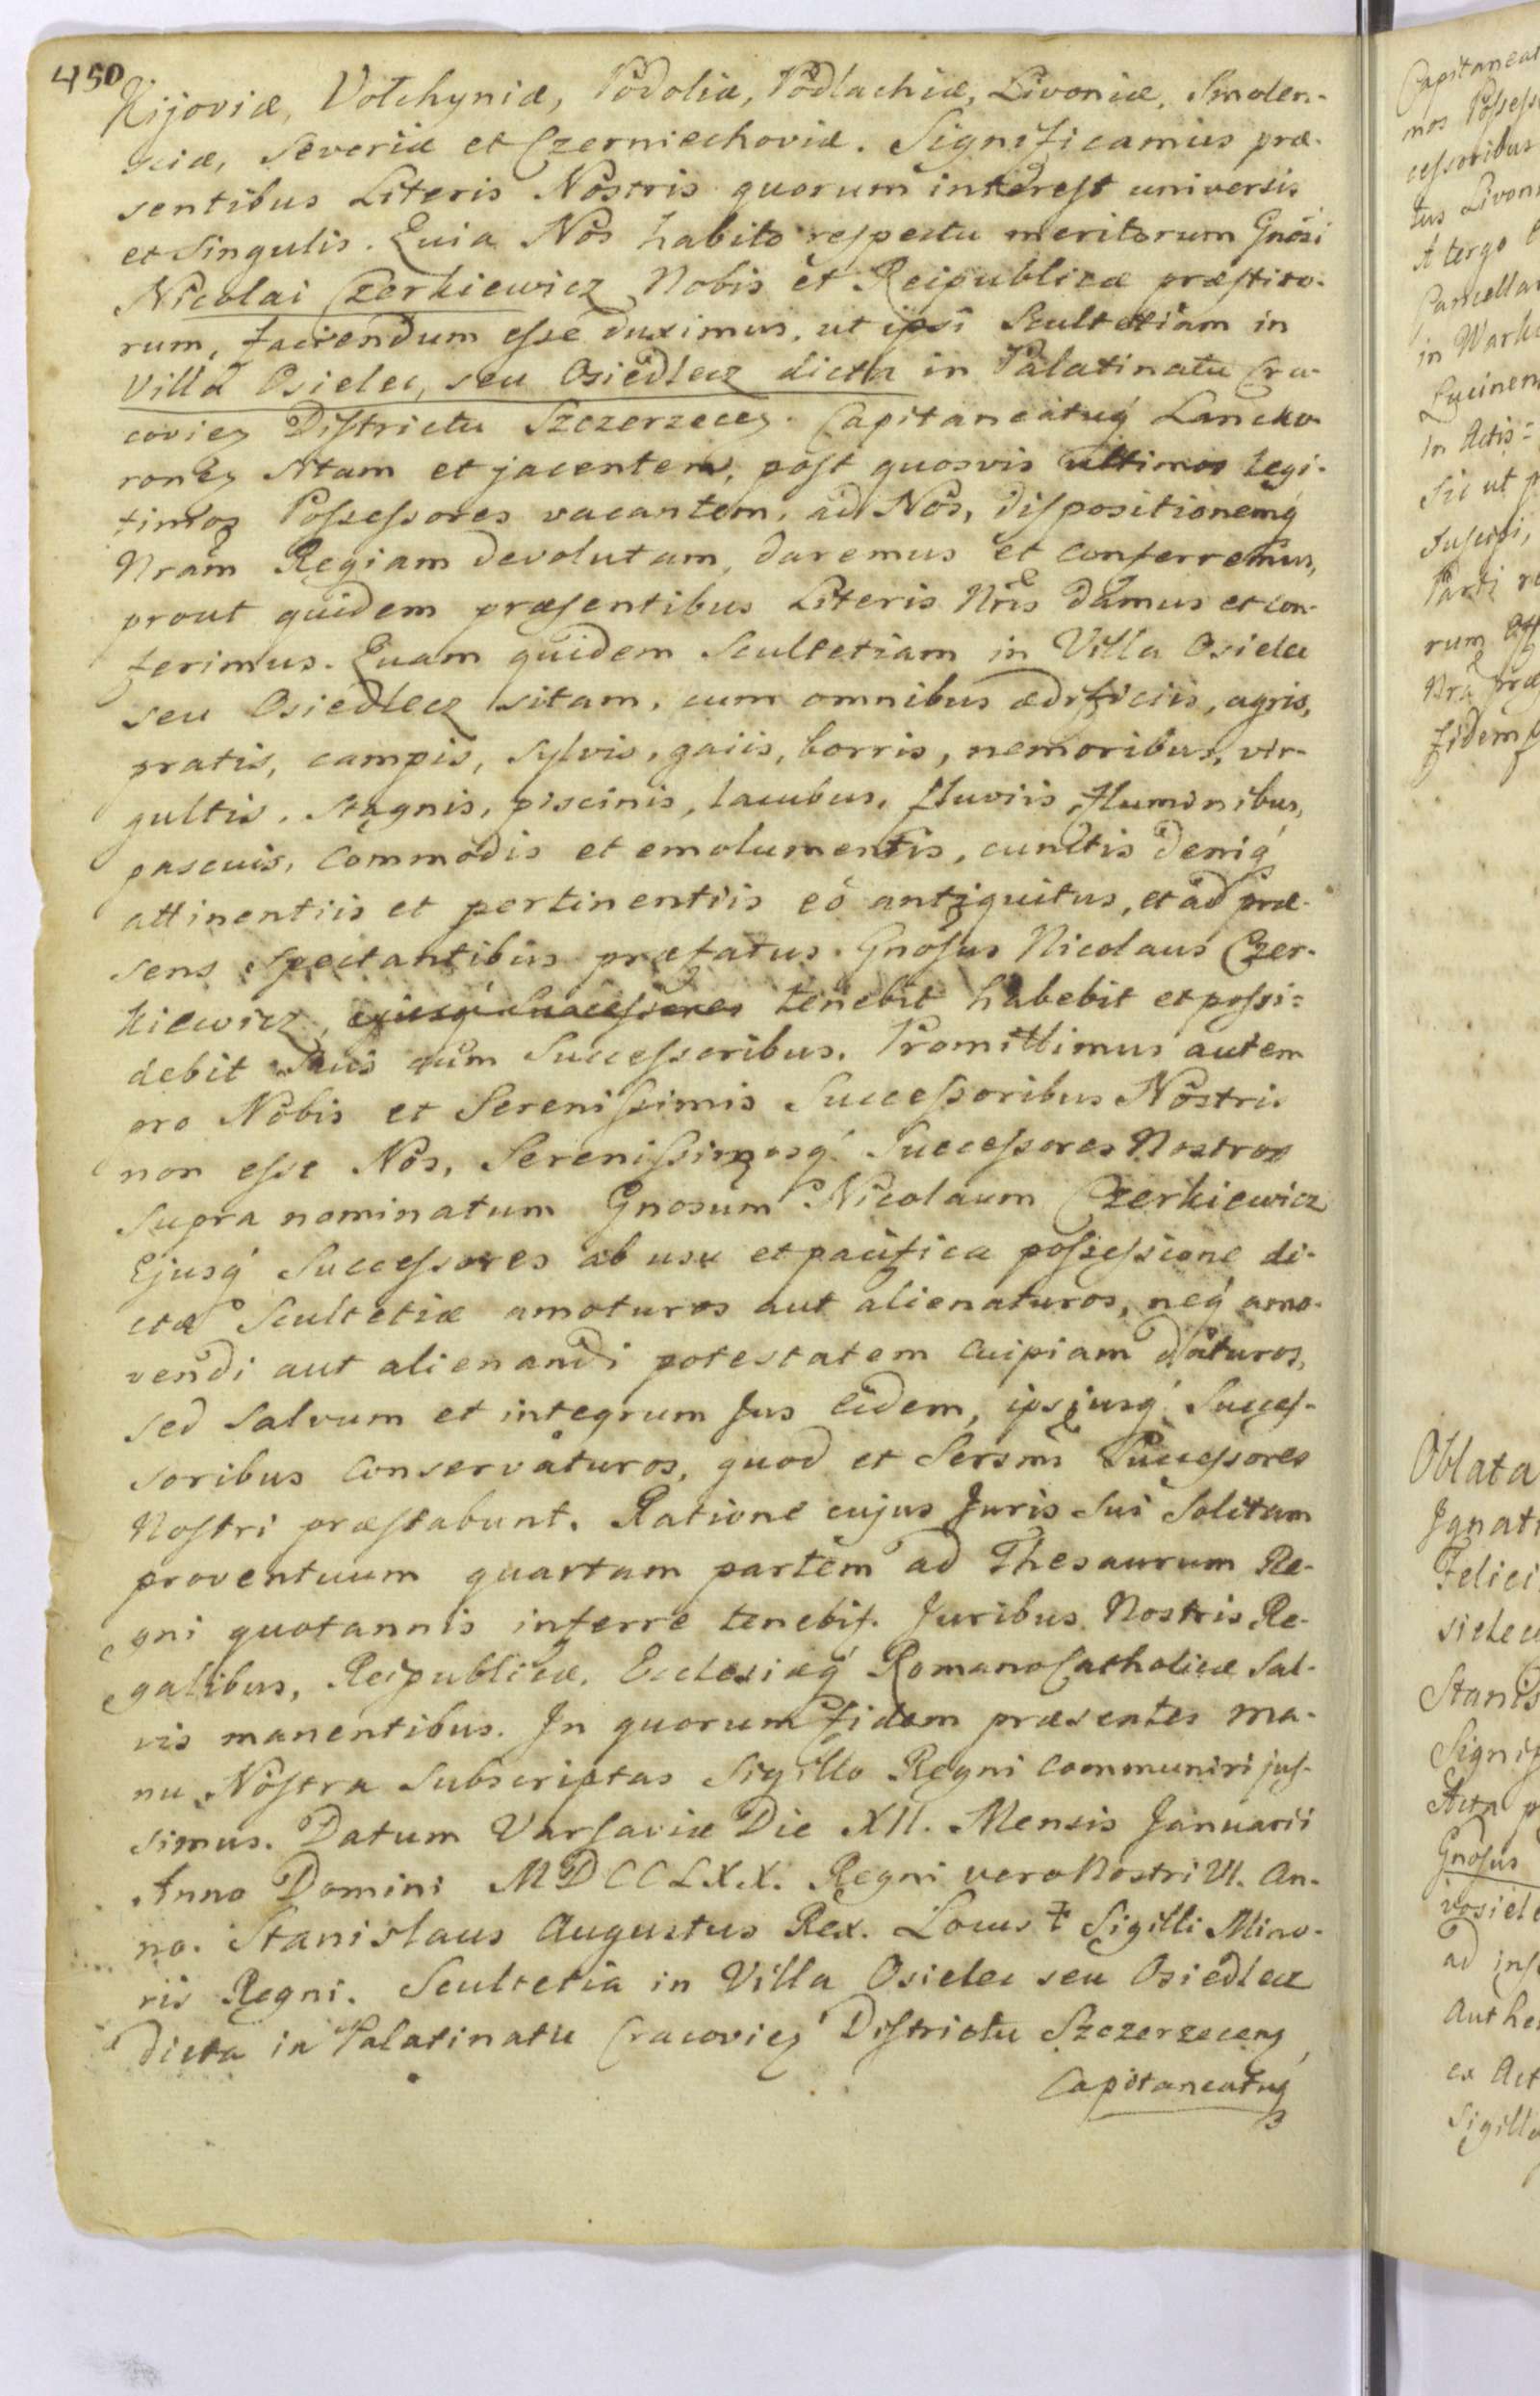 450
Kijoviæ, Volchyniæ, Podoliæ, Podlachiæ, Livoniæ, Smolen-
sciæ, Severiæ et Czerniechoviæ. Significamus præ-
sentibus Literis Nostris quorum interest universis
et singulis. Quia Nos habito respectu meritorum Gnosi
Nicolai Czerkiewicz Nobis et Reipublicæ præstito-
rum, faciendum esse duximus, ut ipsi Scultetiam in
Villa Osielec, seu Osiedlecz dicta in Palatinatu Cra-
covieñ Districtu Szczerzeceñ. Capitaneatuq́ Lancko-
ronêñ sitam et jacentem, post quosvis ultimos legi-
timos Possessores vacantem, ad Nos, dispositionemq́
Nram̃ Regiam devolutam, daremus et conferremus,
prout quidem præsentibus Literis Nris̃ damus et con-
ferimus. Quam quidem Scultetiam in Villa Osielec
seu Osiedlecz sitam, cum omnibus ædificiis, agris,
pratis, campis, sylvis, gaiis, borris, nemoribus, vir-
gultis, stagnis, piscinis, lacubus, fluviis, fluminibus,
pascuis, commodis et emolumentis, cunctis deniq́
attinentiis et pertinentiis eó antiquitus, et ad præ-
sens spectantibus præfatus Gnosus Nicolaus Czer-
kiewicz, ejusq́ Successores tenebit habebit et possi=
debit suis cum Successoribus. Promittimus autem
pro Nobis et Serenissimis Successoribus Nostris
non esse Nos, Serenissimosq́ Successores Nostros
supra nominatum Gnosum Nicolaum Czerkiewicz
Ejusq́ Successores ab usu et pacifica possessione di-
ctæ Scultetiæ amoturos aut alienaturos, neq́ amo-
vendi aut alienandi potestatem cuipiam daturos,
sed salvum et integrum Jus eidem, ipsiusq́ Succes-
soribus conservaturos, quod et Sersmĩ Successores
Nostri præstabunt. Ratione cujus Juris sui solitam
proventuum quartam partem ad Thesaurum Re-
gni quotannis inferre tenebit. Juribus Nostris Re-
galibus, Reipublicæ, Ecclesiæq́ RomanoCatholicæ sal-
vis manentibus. In quorum fidem præsentes ma-
nu Nostra subscriptas Sigillo Regni communiri jus-
simus. Datum Varsaviæ Die XII. Mensis Januarii
Anno Domini MDCCLXX. Regni vero Nostri VI. An-
no. Stanislaus Augustus Rex. Locus ‡ Sigilli Mino-
ris Regni. Scultetia in Villa Osielec seu Osiedlecz
dicta in Palatinatu Cracovieñ Districtu Szczerzeceñ,
Capitaneatuq́
Capitaneat
mos Posses
cessoribus
tus Livon
A tergo
Cancellar
in Wark
in Actis=
sic ut
suscepi,
Parti
rum
Nrã præ
fidem
Oblata
Ignati
Felici
sielec
Stanis
Signif
Acta p
Gnosus
ad ins
Authe
ex Act
Sigillo